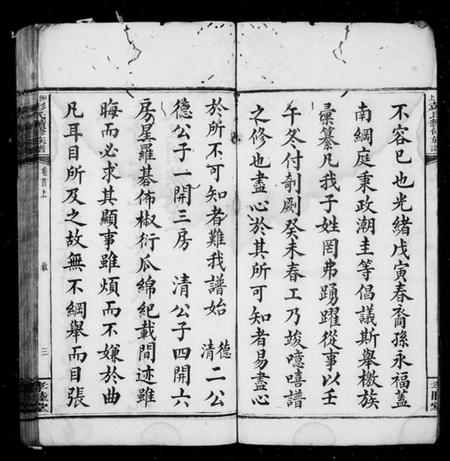 不容已也光緒戊寅春裔孫永福蓋
南綱庭秉政潮圭等倡議斯舉檄族
彙纂凡我子姓罔弗踴躍從事以壬
午冬付剞劂癸未春工乃竣噫嘻譜
之修也盡心於其所可知者易盡心
於所不可知者難我譜始德清二公
德公子一開三房 清公子四開六
房星羅碁佈椒衍瓜綿紀載間迹雖
晦而必求其顯事雖煩而不嫌於曲
凡耳目所及之故無不綱舉而目張
卷首上
三